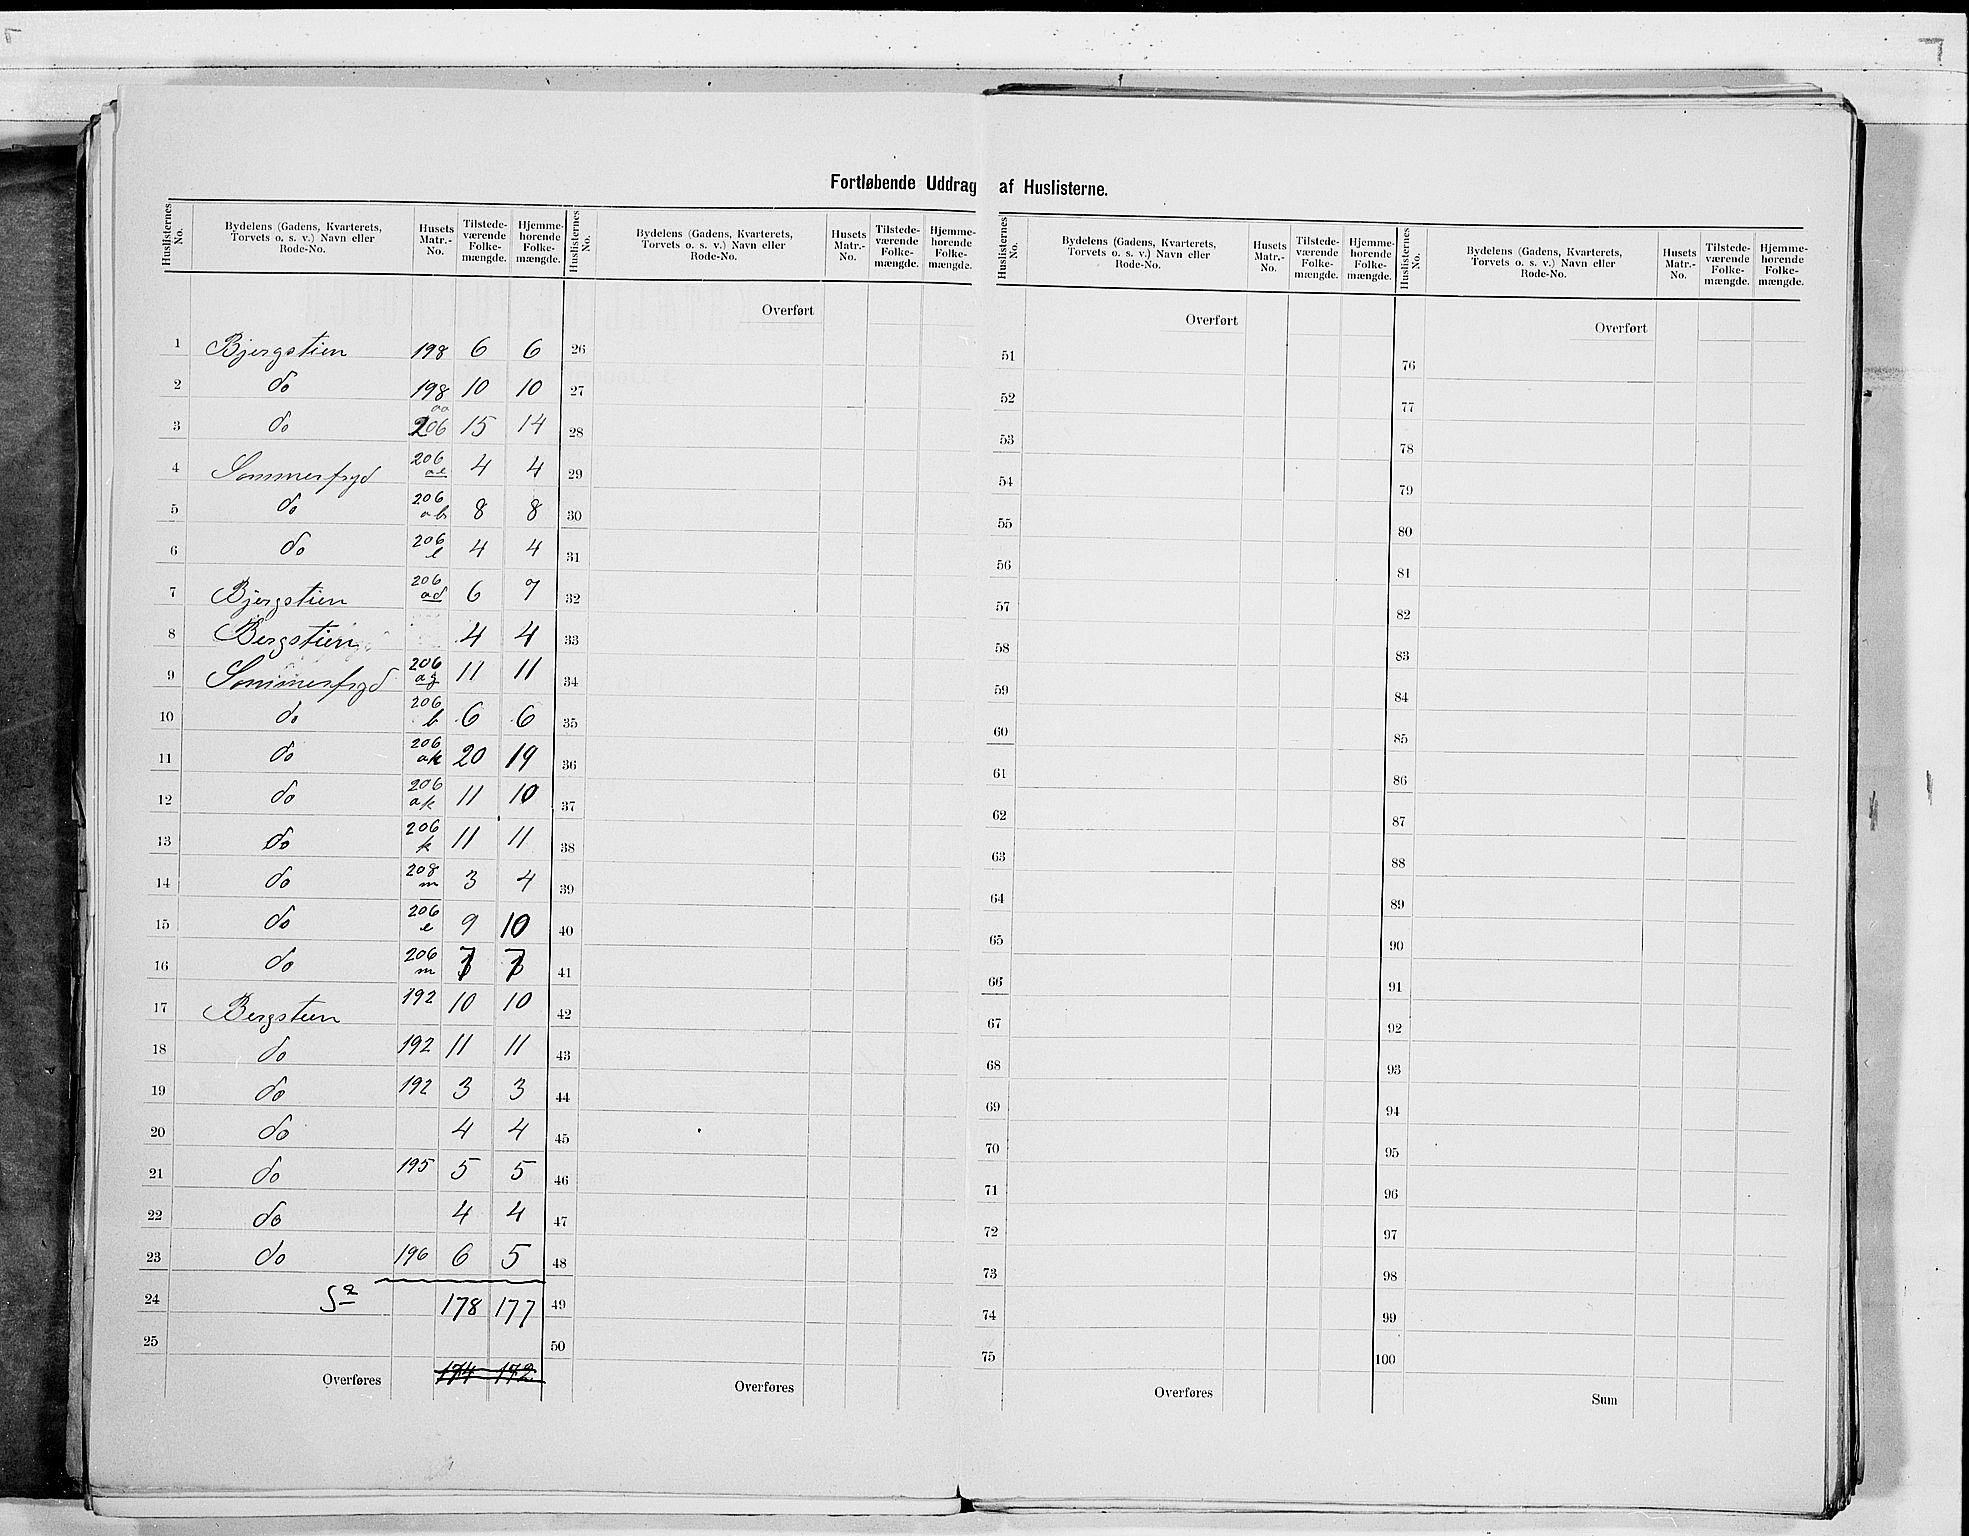 Fortløbende Uddrag af Huslisterne.
Huslisternes No. | Bydelens (Gadens, Kvarterets, Torvets o. s. v.) Navn eller Rode-No. | Husets Matr.-No. | Tilstedeværende Folkemængde. | Hjemmehørende Folkemængde. | Huslisternes No. | Bydelens (Gadens, Kvarterets, Torvets o. s. v.) Navn eller Rode-No. | Husets Matr.-No. | Tilstedeværende Folkemængde. | Hjemmehørende Folkemængde. | Huslisternes No. | Bydelens (Gadens, Kvarterets, Torvets o. s. v.) Navn eller Rode-No. | Husets Matr.-No. | Tilstedeværende Folkemængde. | Hjemmehørende Folkemængde. | Huslisternes No. | Bydelens (Gadens, Kvarterets, Torvets o. s. v.) Navn eller Rode-No. | Husets Matr.-No. | Tilstedeværende Folkemængde. | Hjemmehørende Folkemængde.
Overført | Overført | Overført
1 Bjergstien 198 6 6 | 26 | 51 | 76
2 do 198 10 10 | 27 | 52 | 77
3 do aa 206 15 14 | 28 | 53 | 78
4 Sommerfryd 206 ae 4 4 | 29 | 54 | 79
5 do 206 ab 8 8 | 30 | 55 | 80
6 do 206 l 4 4 | 31 | 56 | 81
7 Bjergstien 206 ad 6 7 | 32 | 57 | 82
8 Bergstien 4 4 | 33 | 58 | 83
9 Sommerfryd 206 ag 11 11 | 34 | 59 | 84
10 do 206 b 6 6 | 35 | 60 | 85
11 do 206 ak 20 19 | 36 | 61 | 86
12 do 206 ak 11 10 | 37 | 62 | 87
13 do 206 k 11 11 | 38 | 63 | 88
14 do 208 m 3 4 | 39 | 64 | 89
15 do 206 e 9 10 | 40 | 65 | 90
16 do 206 m 7 7 | 41 | 66 | 91
17 Bergstien 192 10 10 | 42 | 67 | 92
18 do 192 11 11 | 43 | 68 | 93
19 do 192 3 3 | 44 | 69 | 94
20 do 4 4 | 45 | 70 | 95
21 do 195 5 5 | 46 | 71 | 96
22 do 4 4 | 47 | 72 | 97
23 do 196 6 5 | 48 | 73 | 98
24 Sa 178 177 | 49 | 74 | 99
25 | 50 | 75 | 100
Overføres 174 172 | Overføres | Overføres | Sum